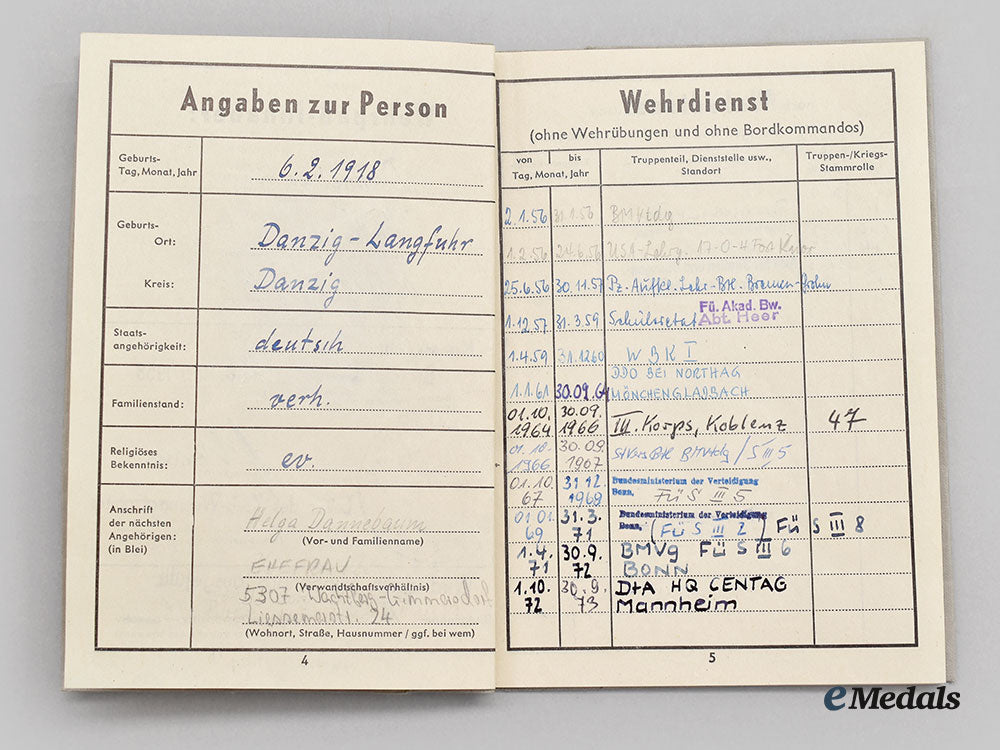 Angaben zur Person
Geburts-
Tag, Monat, Jahr
6.2.1918
Geburts-
Ort:
Danzig-Langfuhr
Kreis:
Danzig
Staats-
angehörigkeit:
deutsch
Familienstand:
verh.
Religiöses
Bekenntnis:
ev.
Anschrift
der nächsten
Angehörigen:
(in Blei)
Helga
(Vor- und Familienname)
EHEFRAU
(Verwandtschaftsverhältnis)
5307 Wachtberg-Gimmersdorf
24
(Wohnort, Straße, Hausnummer / ggf. bei wem)
4
Wehrdienst
(ohne Wehrübungen und ohne Bordkommandos)
von bis
Tag, Monat, Jahr
Truppenteil, Dienststelle usw.,
Standort
Truppen-/Kriegs-
Stammrolle
2.1.56 31.1.56 BMVtdg
1.2.56 24.6.56 USA-Lehrg. 17-0-4 Fort Knox
25.6.56 30.11.57 Pz.-Aufkl.-Lehr-Btl. Bremen-Grohn
Fü. Akad. Bw.
1.12.57 31.3.59 Abt. Heer
1.4.59 31.1260 WBK I
DDO BEI NORTHAG
1.1.61 30.09.64 MÖNCHENGLADBACH
01.10. 30.09.
1964 1966 III. Korps, Koblenz 47
01.10. 30.09.
1966 1967 BMVtdg / S III 5
01.10 31.12. Bundesministerium der Verteidigung
67 1969 Bonn, Fü S III 5
01 01. 31.3. Bundesministerium der Verteidigung
69 71 Bonn, (Fü S III 2) Fü S III 8
1.4. 30.9. BMVg Fü S III 6
71 72 BONN
1.10. 30.9. DtA HQ CENTAG
72 73 Mannheim
5
eMedals